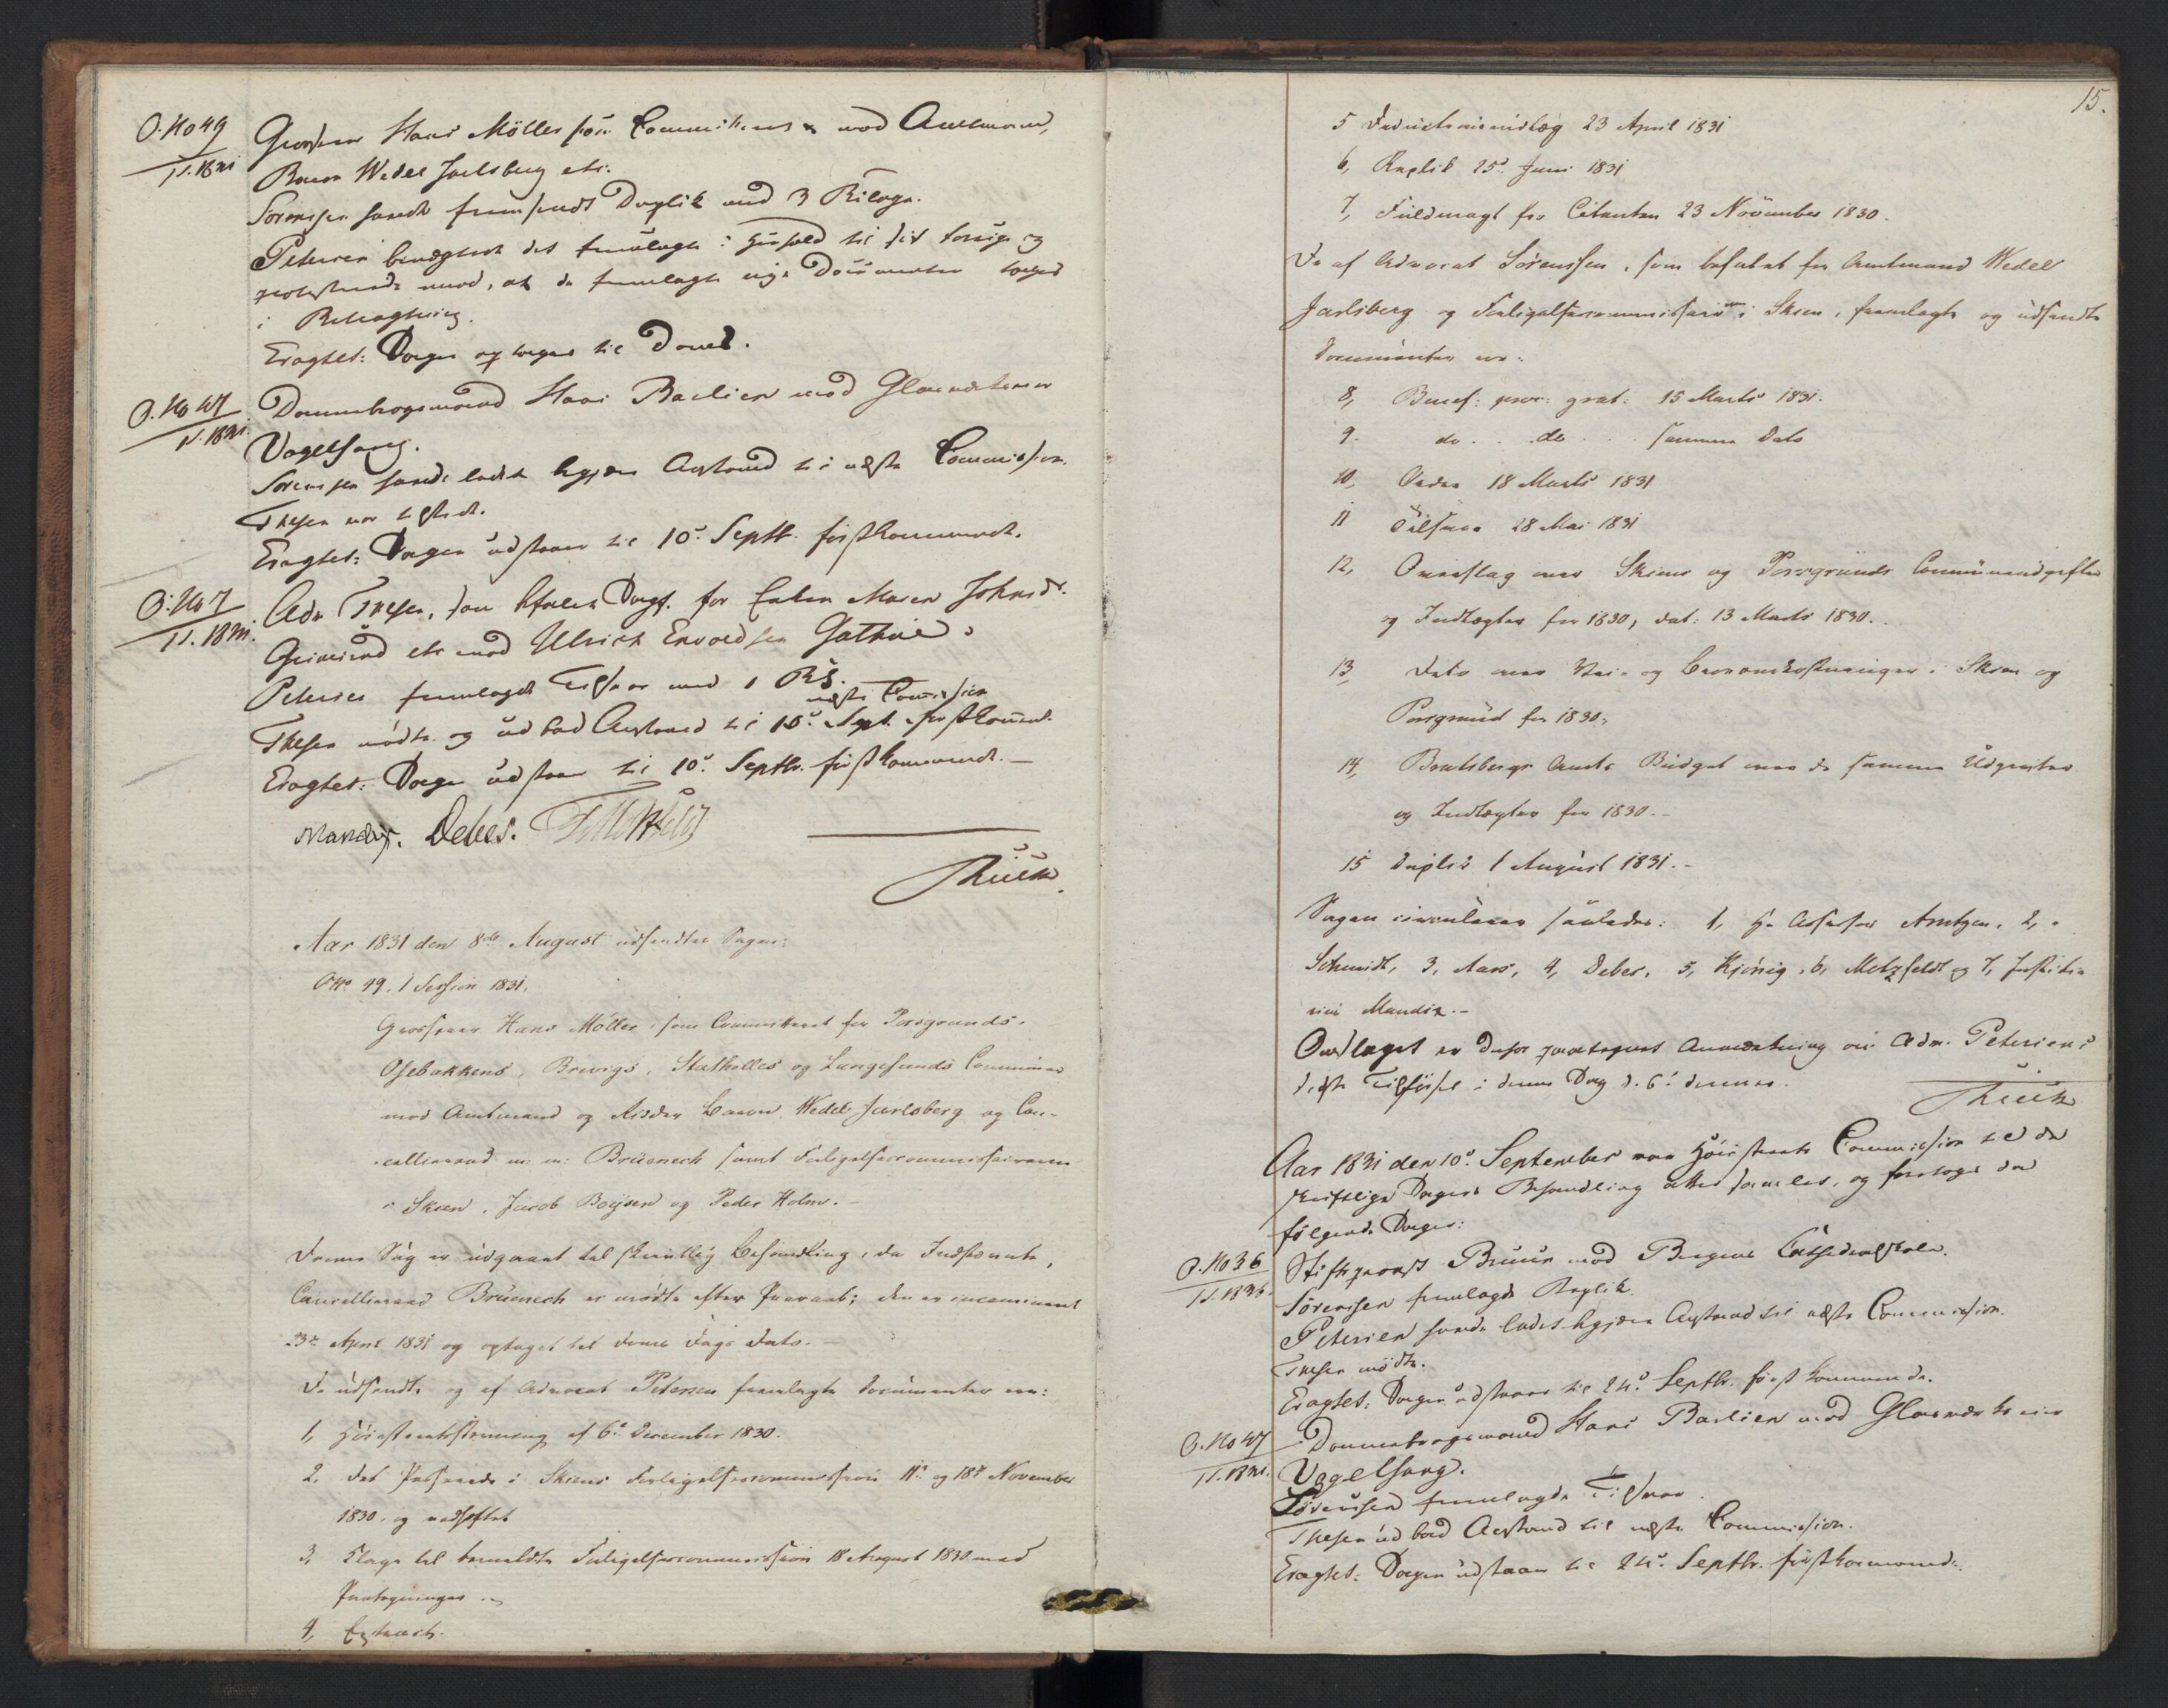 O. No 49
1 S. 1831
Grosserer Hans Möller som Committeret mod Amtmand,
Baron Wedel Jarlsberg etc.
Sørenssen havde fremsendt Duplik med 3 Bilage.
Petersen benægtede det fremlagte i Henhold til sit forrige og
protesterede mod, at de fremlagte nye Documenter toges
i Betragtning.
Eragtet: Sagen optages til Doms.
O. No 47
1 S. 1831.
Dannebrogsmand Hans Barlien mod Glasværkseier
Vogelsang.
Sørenssen havde ladet begjære Anstand til næste Commission.
Thesen var tilstede.
Eragtet: Sagen udstaaer til 10de Septbr. førstkommende.
O. No 7
1 S. 1831.
Adv. Thesen, som befalet Sagf. for Enken Maren Johnsdr.
Grimsrud etc mod Ulrich Envoldsen Gathue.
Petersen fremlagde Tilsvar med 1 Bil.
næste Commission
Thesen mødte og udbad Anstand til 10de Sept. førstkommende.
Eragtet: Sagen udstaaer til 10de Septbr. førstkommende. —
Mandix. Debes. F. Motzfeldt
Thrück
Aar 1831 den 8de August udsendtes Sagen:
O No 49. 1 Session 1831.
Grosserer Hans Möller, som Committeret for Porsgrunds,
Osebakkens, Brevigs, Stathelles og Langesunds Communer
mod Amtmand og Ridder Baron Wedel Jarlsberg og Can-
celliraad m: m: Brüenech samt Forligelsescommissairerne
i Skeen, Jacob Boÿsen og Peder Holm. -
Denne Sag er udgaaet til skriftlig Behandling, da Indstevnte,
Cancelliraad Brüenech er mødte efter Paaraab; den er incamineret
23de April 1831 og optaget til Doms Dags Dato. —
De udsendte og af Advocat Petersen fremlagte Documenter ere:
1, Høiesteretsstevning af 6te December 1830.
2. Det Passerede i Skiens Forligelsescommission 11te og 18de November
1830. og vedheftet
3, Klage til bemeldte Forligelsescommission 18 August 1830 med
Paategninger
4, Extract.
15.
5 Deductionsindlæg 23 April 1831
6, Replik 25de Juni 1831
7, Fuldmagt for Citanten 23 November 1830.
De af Advocat Sørenssen, som befalet for Amtmand Wedel
Jarlsberg og Forligelsescommissairerne i Skien, fremlagte og udsendte
Documenter ere:
8, Benef: proc: grat: 15 Marts 1831.
9. do . . do . . . samme Dato
10, Orden 18 Marts 1831
11 Tilsvar 28 Mai 1831
12, Overslag over Skiens og Porsgrunds Communeudgifter
og Indtægter for 1830, dat: 13 Marts 1830.
13, Dito over Vei- og Broomkostninger i Skien og
Porsgrund for 1830.
14, Bratsbergs Amts Budget over de samme Udgifter
og Indtægter for 1830. -
15 Duplik 1 August 1831. -
Sagen circulerer saaledes: 1, Hr. Assessor Arntzen, 2, "
Schmidt, 3, Aars, 4, Debes, 5, Kjønig, 6, Motzfeldt og 7, Justitia-
rius Mandix. -
Omslaget er derfor paategnet Anmærkning om Adv. Petersens
sidste Tilførsel i denne Sag d. 6te dennes.
Thrück
Aar 1831 den 10de September var Høiesterets Commission til de
skriftlige Sagers Behandling atter samlet, og foretoges da
følgende Sager:
O. No 36
1 S. 1831.
Stiftsprovst Bruun mod Bergens Cathedralskole.
Sørenssen fremlagde Replik.
Petersen havde ladet begjære Anstand til næste Commission.
Thesen mødte.
Eragtet: Sagen udstaaer til 24de Septbr. først kommende.
O. No 47
1 S. 1831.
Dannebrogsmand Hans Barlien mod Glasværkseier
Vogelsang.
Sørenssen fremlagde Tilsvar.
Thesen udbad Anstand til næste Commission.
Eragtet: Sagen udstaaer til 24de Septbr. førstkommende.